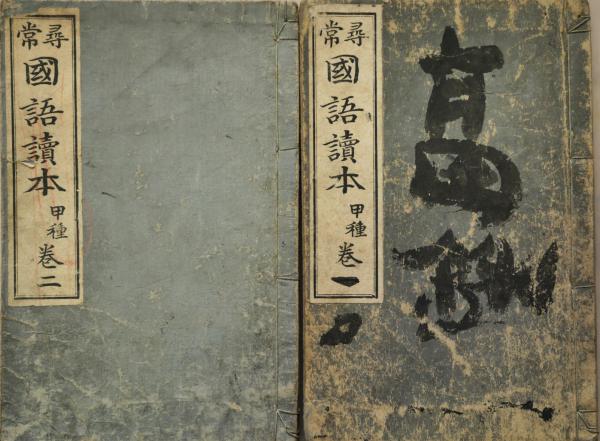 尋常
國語讀本
甲種
卷一
尋常
國語讀本
甲種
卷二